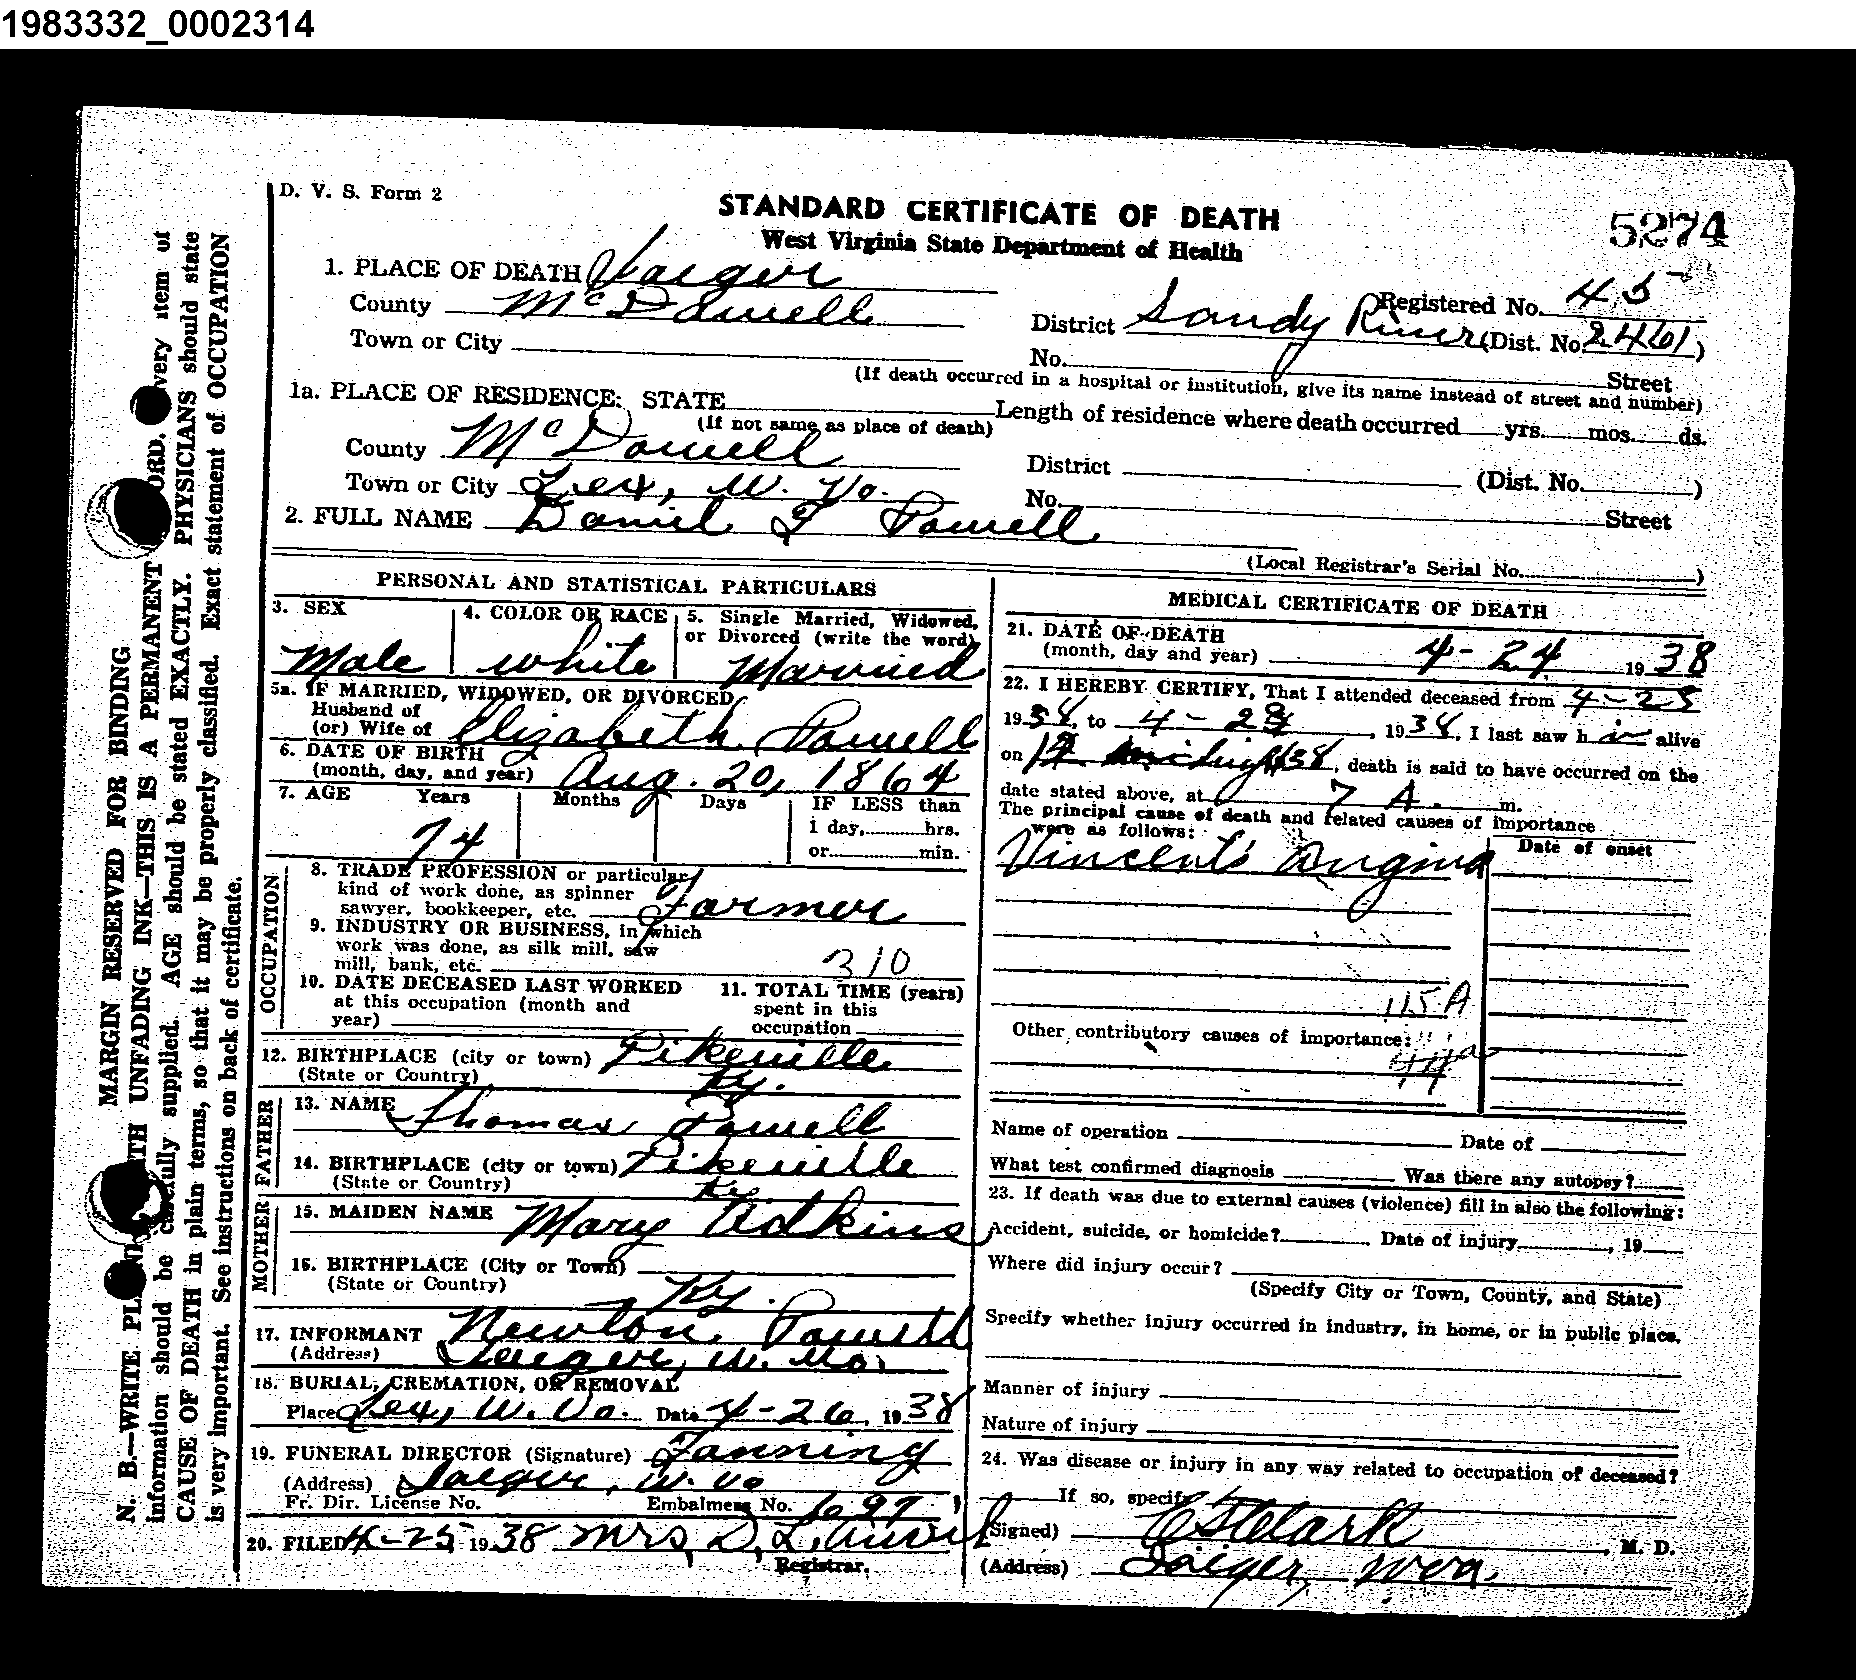 1983332_0002314
D. V. S. Form 2
STANDARD CERTIFICATE OF DEATH
West Virginia State Department of Health
5274
1. PLACE OF DEATH Iaeger
Registered No. 45
County McDowell
District Sandy River (Dist. No. 2461)
Town or City
No. Street
(If death occurred in a hospital or institution, give its name instead of street and number)
1a. PLACE OF RESIDENCE: STATE
(If not same as place of death)
Length of residence where death occurred yrs. mos. ds.
County McDowell
District (Dist. No. )
Town or City Lex, W. Va.
No. Street
2. FULL NAME Daniel F Powell
(Local Registrar's Serial No. )
PERSONAL AND STATISTICAL PARTICULARS
3. SEX
Male
4. COLOR OR RACE
white
5. Single Married, Widowed,
or Divorced (write the word)
Married
5a. IF MARRIED, WIDOWED, OR DIVORCED
Husband of
(or) Wife of Elizabeth Powell
6. DATE OF BIRTH
(month, day, and year) Aug. 20, 1864
7. AGE Years Months Days IF LESS than
1 day, hrs.
or min.
74
OCCUPATION
8. TRADE PROFESSION or particular
kind of work done, as spinner
sawyer, bookkeeper, etc. Farmer
9. INDUSTRY OR BUSINESS, in which
work was done, as silk mill, saw
mill, bank, etc. 310
10. DATE DECEASED LAST WORKED
at this occupation (month and
year)
11. TOTAL TIME (years)
spent in this
occupation
12. BIRTHPLACE (city or town) Pikeville
(State or Country) Ky.
FATHER
13. NAME Thomas Powell
14. BIRTHPLACE (city or town) Pikeville
(State or Country) Ky.
MOTHER
15. MAIDEN NAME Mary Adkins
16. BIRTHPLACE (City or Town)
(State or Country) Ky.
17. INFORMANT Newton Powell
(Address) Iaeger, W. Va.
18. BURIAL, CREMATION, OR REMOVAL
Place Lex, W. Va. Date 4-26, 1938
19. FUNERAL DIRECTOR (Signature) Fanning
(Address) Iaeger, W. Va
Fr. Dir. License No. Embalmers No. 697
20. FILED 4-25 1938 Mrs. D. L. Auvil
Registrar.
MEDICAL CERTIFICATE OF DEATH
21. DATE OF DEATH
(month, day and year) 4-24 1938
22. I HEREBY CERTIFY, That I attended deceased from 4-23
1938, to 4-24, 1938, I last saw h im alive
on 12 midnight 38, death is said to have occurred on the
date stated above, at 7 A. m.
The principal cause of death and related causes of importance
were as follows:
Date of onset
Vincent's Angina
115A
Other contributory causes of importance:
44a
Name of operation Date of
What test confirmed diagnosis Was there any autopsy?
23. If death was due to external causes (violence) fill in also the following:
Accident, suicide, or homicide? Date of injury , 19
Where did injury occur?
(Specify City or Town, County, and State)
Specify whether injury occurred in industry, in home, or in public place.
Manner of injury
Nature of injury
24. Was disease or injury in any way related to occupation of deceased?
If so, specify
(Signed) C St Clark, M. D.
(Address) Iaeger, W Va.
MARGIN RESERVED FOR BINDING
N. B.—WRITE UNFADING INK—THIS IS A PERMANENT every item of
information should be carefully supplied. AGE should be stated EXACTLY. PHYSICIANS should state
CAUSE OF DEATH in plain terms, so that it may be properly classified. Exact statement of OCCUPATION
is very important. See instructions on back of certificate.